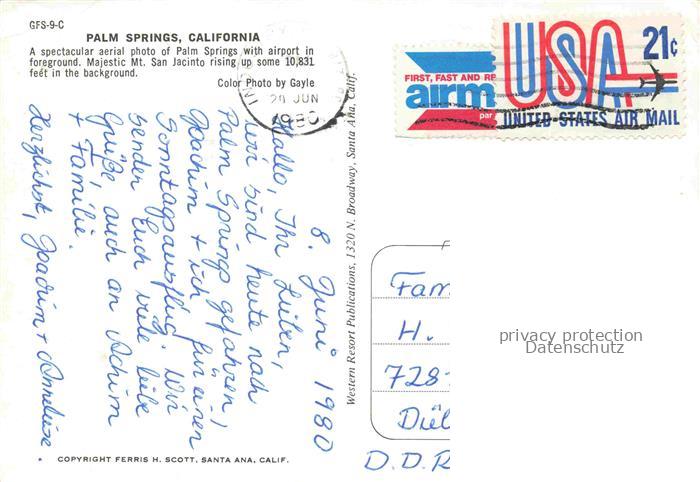 GFS-9-C
PALM SPRINGS, CALIFORNIA
A spectacular aerial photo of Palm Springs with airport in
foreground. Majestic Mt. San Jacinto rising up some 10,831
feet in the background.
Color Photo by Gayle
20 JUN
1980
FIRST, FAST AND RE
airm
par
USA
21¢
UNITED STATES AIR MAIL
8. Juni 1980
Hallo, Ihr Lieben,
wir sind heute nach
Palm Springs gefahren,
Joachim + ich für einen
Sonntagsausflug. Wir
senden Euch viele liebe
Grüße, auch an Achim
+ Familie.
Herzlichst, Joachim + Anneliese.
Western Resort Publications, 1320 N. Broadway, Santa Ana, Calif.
Fam
H.
728
D.D.R
privacy protection
Datenschutz
COPYRIGHT FERRIS H. SCOTT, SANTA ANA, CALIF.